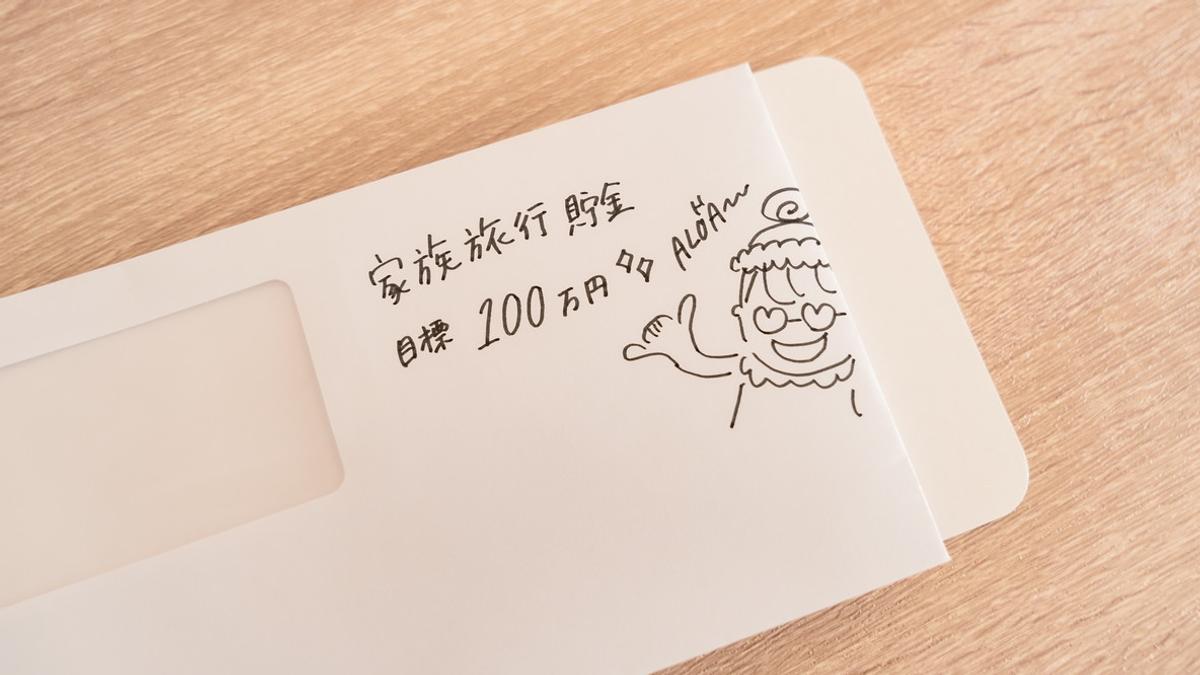 家族旅行貯金
目標 100万円
ALOHA〜